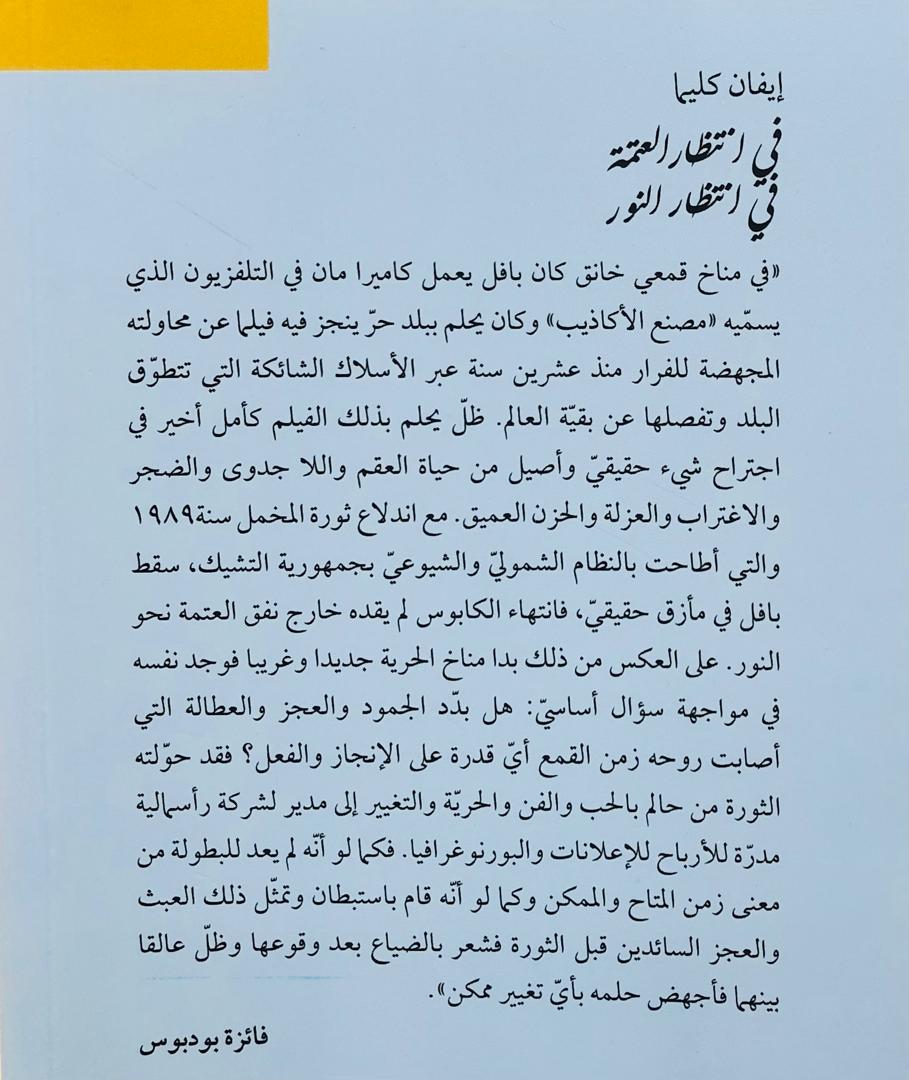 إيفان كليما
في انتظار العتمة
في انتظار النور
«في مناخ قمعي خانق كان بافل يعمل كاميرا مان في التلفزيون الذي
يسمّيه «مصنع الأكاذيب» وكان يحلم ببلد حرّ ينجز فيه فيلما عن محاولته
المجهضة للفرار منذ عشرين سنة عبر الأسلاك الشائكة التي تتطوّق
البلد وتفصلها عن بقيّة العالم. ظلّ يحلم بذلك الفيلم كأمل أخير في
اجتراح شيء حقيقيّ وأصيل من حياة العقم واللا جدوى والضجر
والاغتراب والعزلة والحزن العميق. مع اندلاع ثورة المخمل سنة١٩٨٩
والتي أطاحت بالنظام الشموليّ والشيوعيّ بجمهورية التشيك، سقط
بافل في مأزق حقيقيّ، فانتهاء الكابوس لم يقده خارج نفق العتمة نحو
النور. على العكس من ذلك بدا مناخ الحرية جديدا وغريبا فوجد نفسه
في مواجهة سؤال أساسيّ: هل بدّد الجمود والعجز والعطالة التي
أصابت روحه زمن القمع أيّ قدرة على الإنجاز والفعل؟ فقد حوّلته
الثورة من حالم بالحب والفن والحريّة والتغيير إلى مدير لشركة رأسمالية
مدرّة للأرباح للإعلانات والبورنوغرافيا. فكما لو أنّه لم يعد للبطولة من
معنى زمن المتاح والممكن وكما لو أنّه قام باستبطان وتمثّل ذلك العبث
والعجز السائدين قبل الثورة فشعر بالضياع بعد وقوعها وظلّ عالقا
بينهما فأجهض حلمه بأيّ تغيير ممكن».
فائزة بودبوس